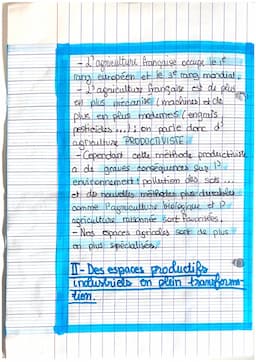 - L'agriculture française occupe le 1er
rang européen et le 3e rang mondial.
- L'agriculture française est de plus
en plus mécanisée (machines) et de
plus en plus modernes (engrais
pesticides...) : on parle donc d'
agriculture PRODUCTIVISTE
- Cependant cette méthode productiviste
a de graves conséquences sur l'
environnement : pollution des sols...
et de nouvelles méthodes plus durables
comme l'agriculture biologique et l'
agriculture raisonnée sont favorisées.
- Nos espaces agricoles sont de plus
en plus spécialisés.
II - Des espaces productifs
industriels en plein transforma-
tion.